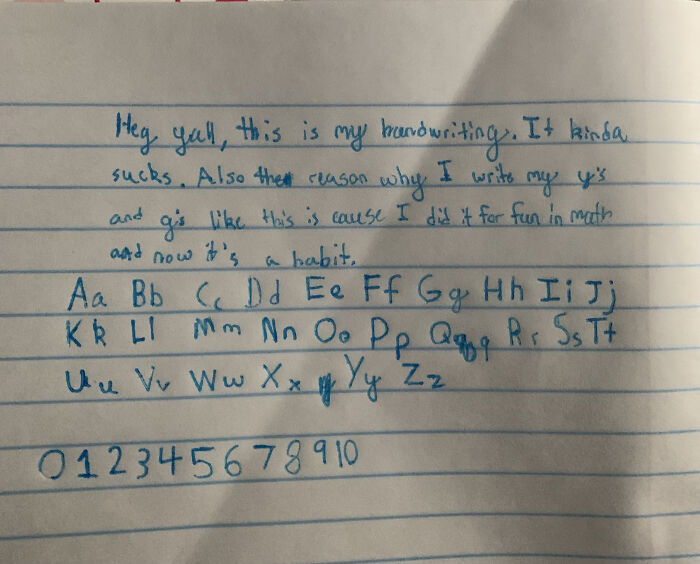 Hey yall, this is my handwriting. It kinda
sucks. Also the reason why I write my y's
and g's like this is cause I did it for fun in math
and now it's a habit.
Aa Bb Cc Dd Ee Ff Gg Hh Ii Jj
Kk Ll Mm Nn Oo Pp Qq Rr Ss Tt
Uu Vv Ww Xx Yy Zz
0 1 2 3 4 5 6 7 8 9 10